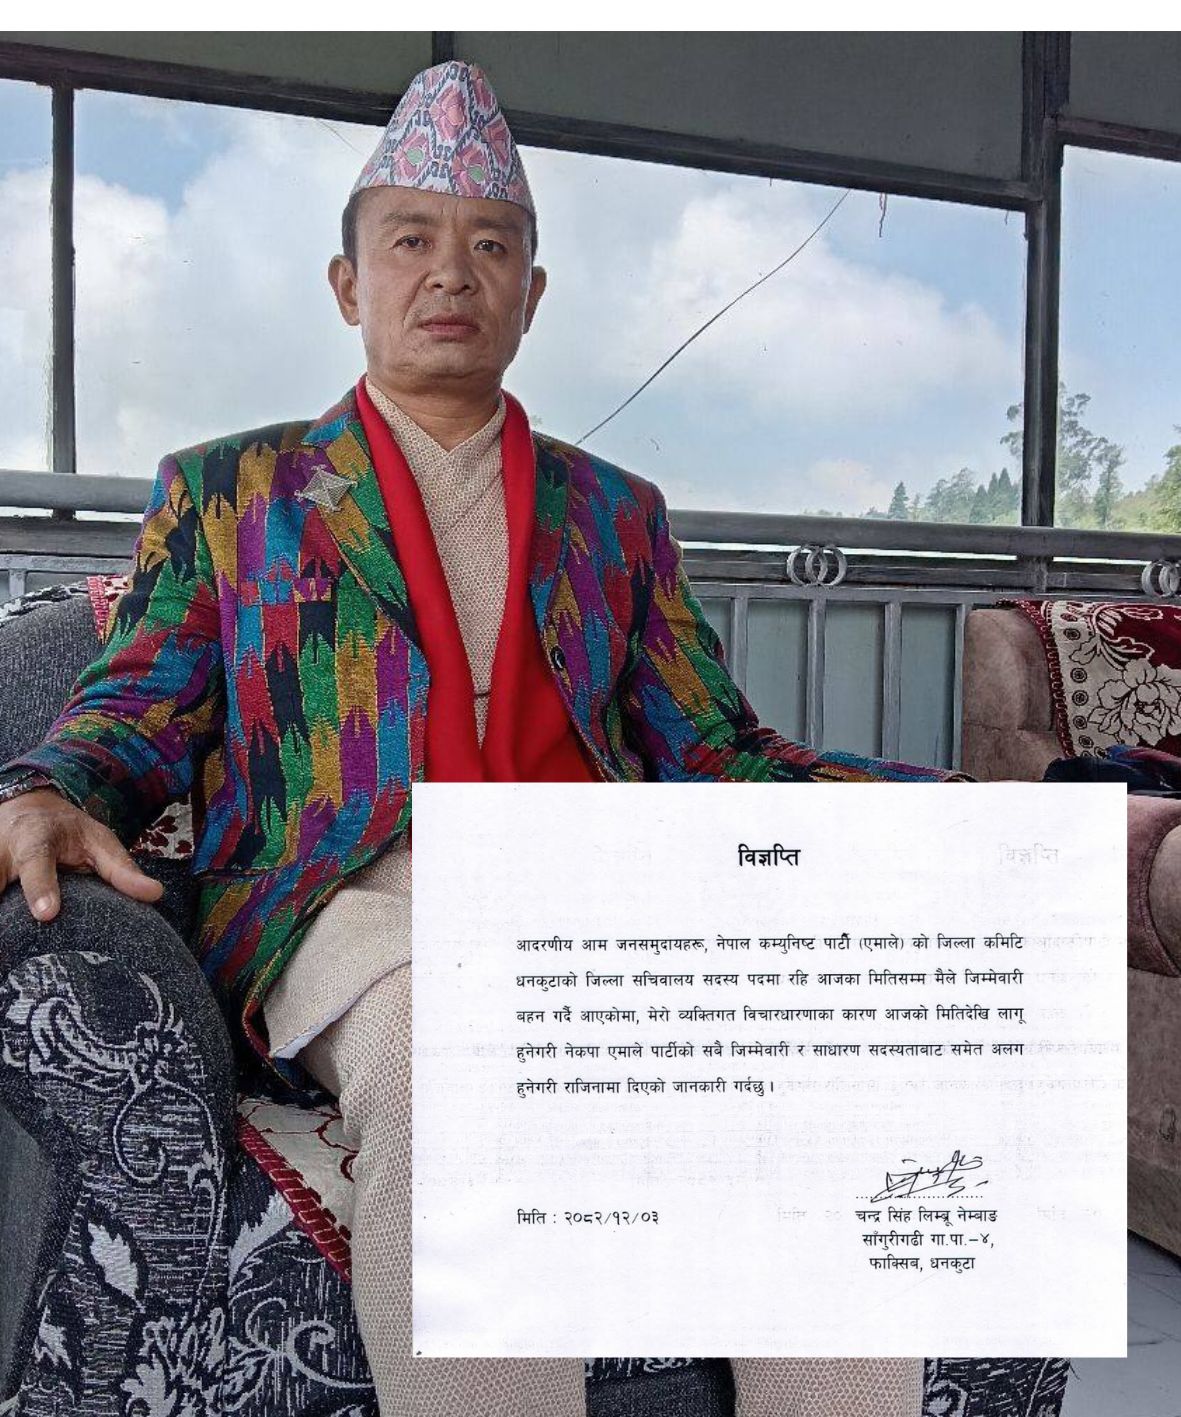 विज्ञप्ति
आदरणीय आम जनसमुदायहरू, नेपाल कम्युनिष्ट पार्टी (एमाले) को जिल्ला कमिटि
धनकुटाको जिल्ला सचिवालय सदस्य पदमा रहि आजका मितिसम्म मैले जिम्मेवारी
बहन गर्दै आएकोमा, मेरो व्यक्तिगत विचारधारणाका कारण आजको मितिदेखि लागू
हुनेगरी नेकपा एमाले पार्टीको सबै जिम्मेवारी र साधारण सदस्यताबाट समेत अलग
हुनेगरी राजिनामा दिएको जानकारी गर्दछु।
मिति : २०८२/१२/०३
चन्द्र सिंह लिम्बू नेम्बाङ
साँगुरीगढी गा.पा.–४,
फाक्सिब, धनकुटा